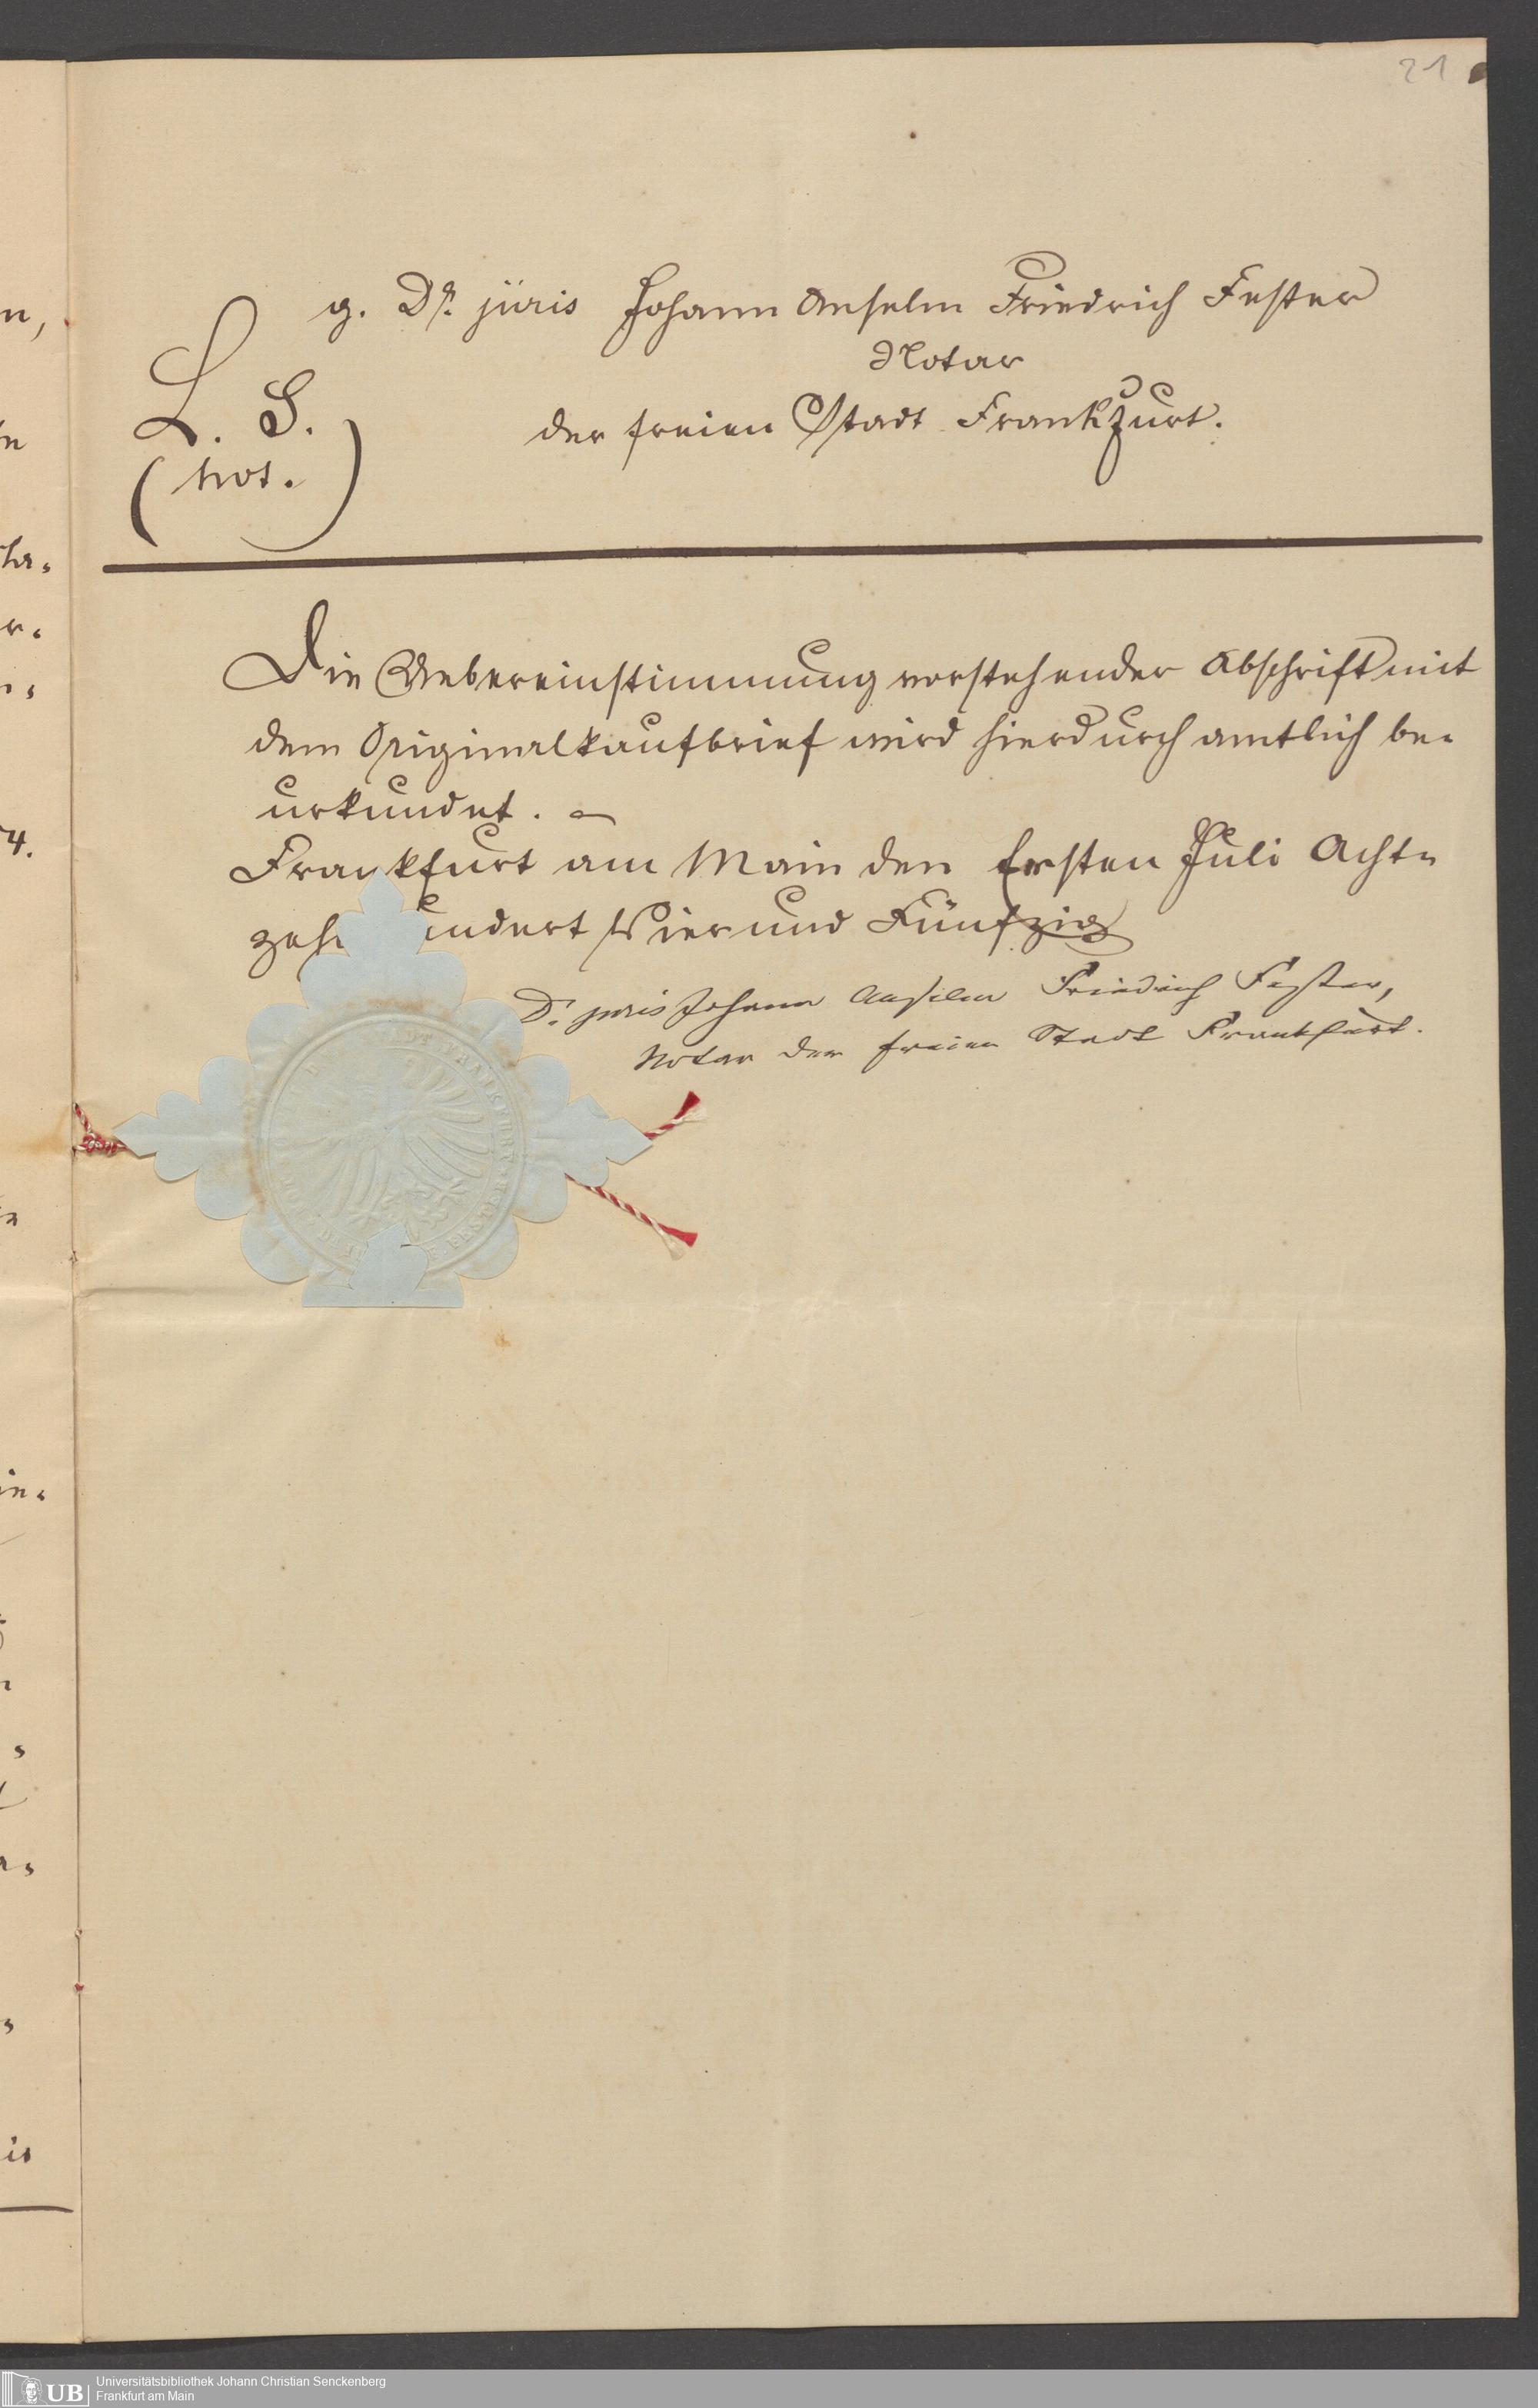 21
g. Dr. jüris Johann Anselm Friedrich Fester
Notar
L. S.
der freien Stadt Frankfurt.
(Not.)
Die Uebereinstimmung vorstehender Abschrift mit
dem Originalkaufbrief wird hierdurch amtlich be-
urkundet. –
Frankfurt am Main den Ersten Juli Acht-
zeh undert Vier und Fünfzig
Dr. juris Johann Anselm Friedrich Fester,
Notar der freien Stadt Frankfurt.
UB Universitätsbibliothek Johann Christian Senckenberg
Frankfurt am Main